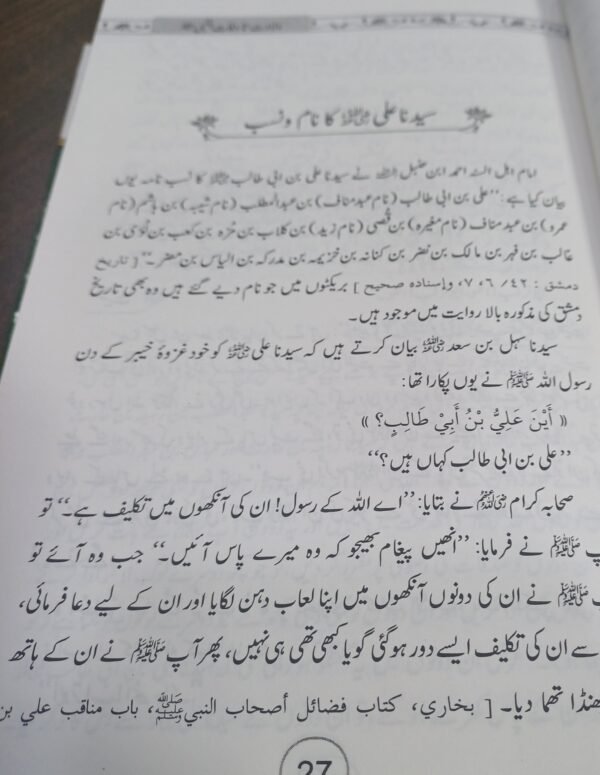 سیدنا علی رضی اللہ عنہ کا نام و نسب
امام اہل السنۃ احمد ابن حنبل رحمہ اللہ نے سیدنا علی بن ابی طالب رضی اللہ عنہ کا نسب نامہ یوں
بیان کیا ہے: ’’علی بن ابی طالب (نام عبد مناف) بن عبدالمطلب (نام شیبہ) بن ہاشم (نام
عمرو) بن عبد مناف (نام مغیرہ) بن قُصی (نام زید) بن کلاب بن مُرّہ بن کعب بن لُؤی بن
غالب بن فہر بن مالک بن نضر بن کنانہ بن خزیمہ بن مدرکہ بن الیاس بن مضر۔‘‘ [ تاریخ
دمشق : ٤٢ / ٦، ٧، وإسناده صحیح ] بریکٹوں میں جو نام دیے گئے ہیں وہ بھی تاریخ
دمشق کی مذکورہ بالا روایت میں موجود ہیں۔
سیدنا سہل بن سعد رضی اللہ عنہ بیان کرتے ہیں کہ سیدنا علی رضی اللہ عنہ کو خود غزوۂ خیبر کے دن
رسول اللہ ﷺ نے یوں پکارا تھا:
« أَيْنَ عَلِيُّ بْنُ أَبِيْ طَالِبٍ؟ »
’’علی بن ابی طالب کہاں ہیں؟‘‘
صحابہ کرام رضی اللہ عنہم نے بتایا: ’’اے اللہ کے رسول! ان کی آنکھوں میں تکلیف ہے۔‘‘ تو
ﷺ نے فرمایا: ’’انھیں پیغام بھیجو کہ وہ میرے پاس آئیں۔‘‘ جب وہ آئے تو
ﷺ نے ان کی دونوں آنکھوں میں اپنا لعاب دہن لگایا اور ان کے لیے دعا فرمائی،
سے ان کی تکلیف ایسے دور ہوگئی گویا کبھی تھی ہی نہیں، پھر آپ ﷺ نے ان کے ہاتھ
تھما دیا۔ [ بخاري، كتاب فضائل أصحاب النبي ﷺ، باب مناقب علي بن
27